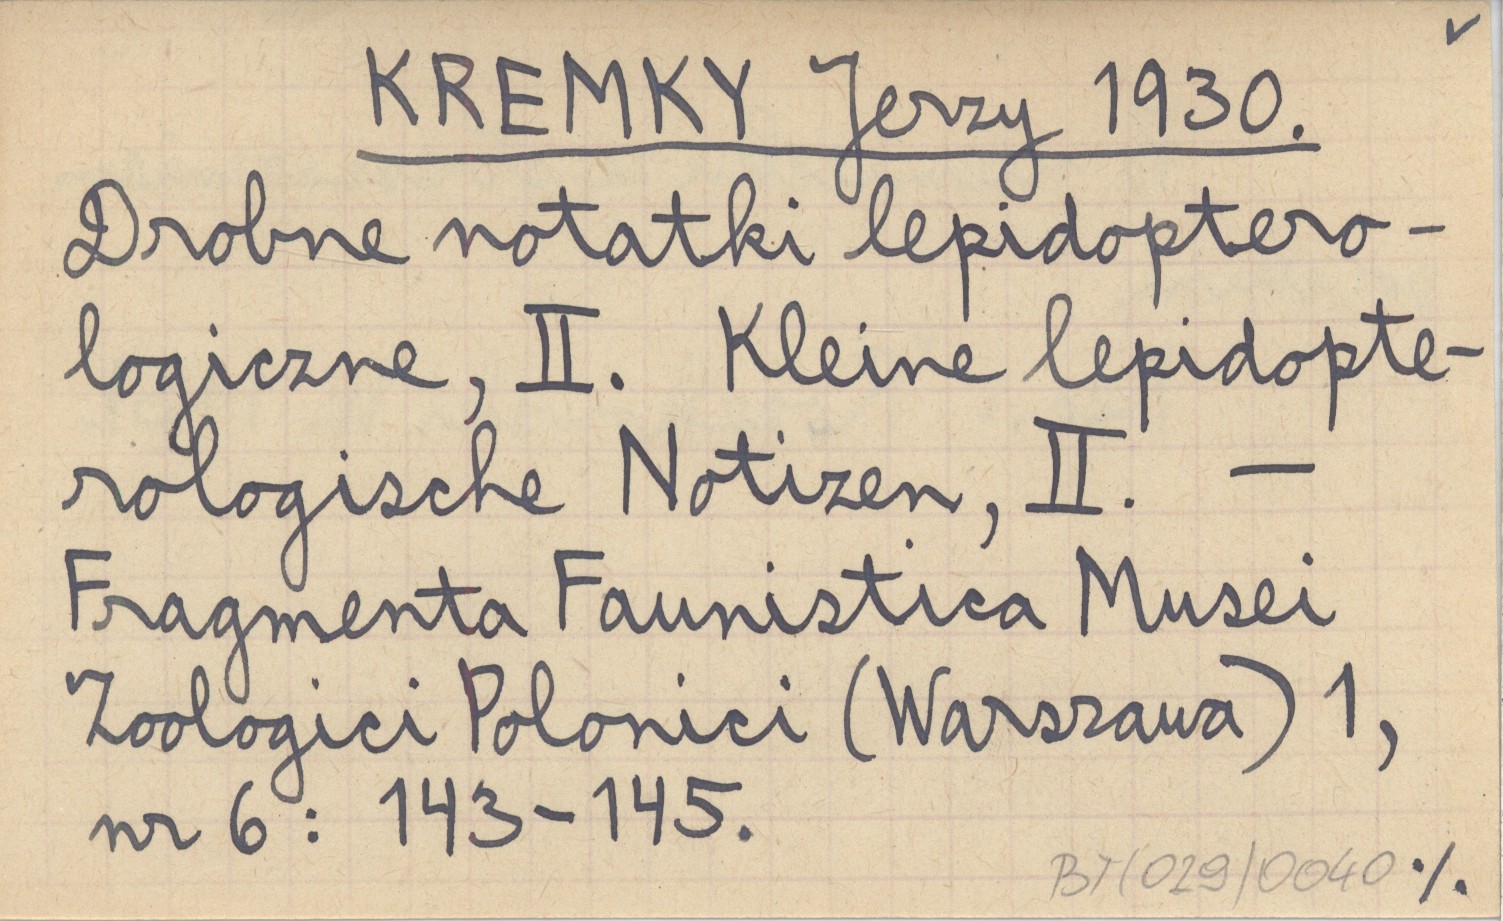 ✓
KREMKY Jerzy 1930.
Drobne notatki lepidoptero-
logiczne, II. Kleine lepidopte-
rologische Notizen, II. —
Fragmenta Faunistica Musei
Zoologici Polonici (Warszawa) 1,
nr 6 : 143-145.
BT/029/0040 ·/.